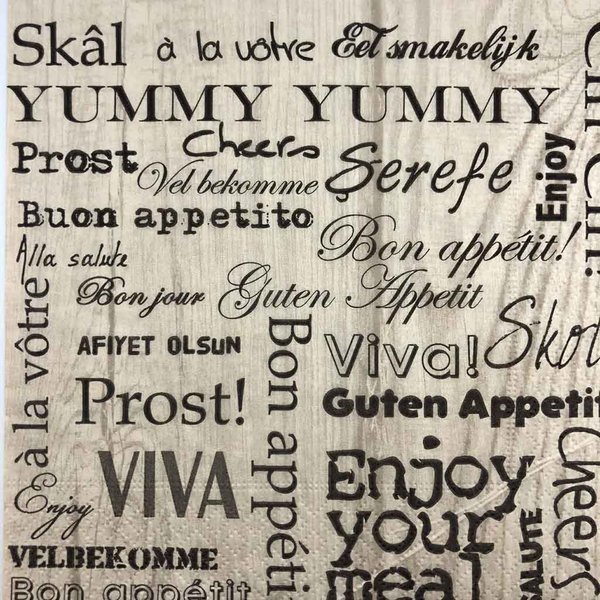 Skâl à la vôtre Eet smakelijk
YUMMY YUMMY
Prost Cheers
Vel bekomme Şerefe
Enjoy
Buon appetito
Bon appétit!
Alla salute
Bon jour Guten Appetit
à la vôtre
AFIYET OLSUN
Bon appéti
Viva!
Prost!
Guten Appetit
VIVA
Enjoy
your
Enjoy
Cheers
SALUTE
VELBEKOMME
Bon appétit